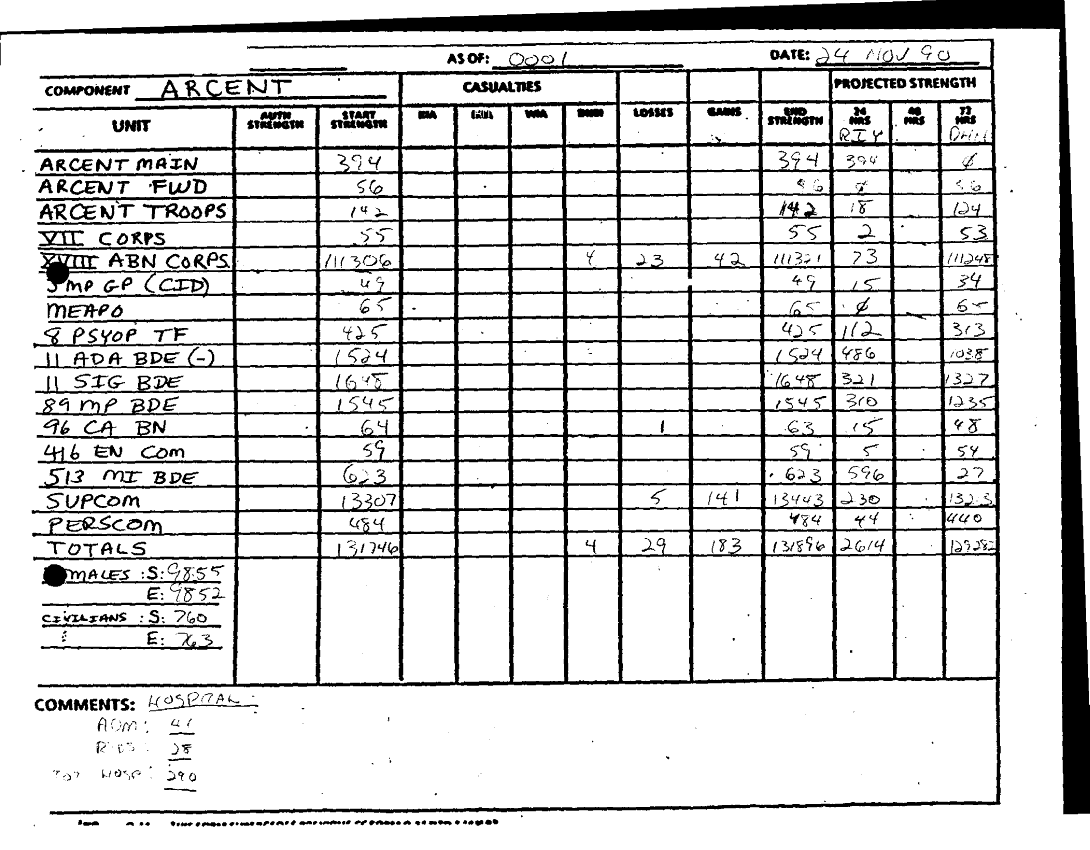 AS OF: 0001 DATE: 24 NOV 90
COMPONENT ARCENT CASUALTIES PROJECTED STRENGTH
UNIT AUTH STRENGTH START STRENGTH KIA WIA LOSSES GAINS END STRENGTH 24 HRS 48 HRS 72 HRS
RIY DHA
ARCENT MAIN 394 394 394 ∅
ARCENT FWD 56 56 ∅ 56
ARCENT TROOPS 142 142 18 124
VII CORPS 55 55 2 53
XVIII ABN CORPS 111306 4 23 42 111321 73 111248
3 MP GP (CID) 49 49 15 34
MEAPO 65 65 ∅ 65
8 PSYOP TF 425 425 112 313
11 ADA BDE (-) 1524 1524 486 1038
11 SIG BDE 1648 1648 321 1327
89 MP BDE 1545 1545 310 1235
96 CA BN 64 1 63 15 48
416 EN COM 59 59 5 54
513 MI BDE 623 623 596 27
SUPCOM 13307 5 141 13443 230 13213
PERSCOM 484 484 44 440
TOTALS 131746 4 29 183 131896 2614 129282
MALES : S: 9855
E: 9852
CIVILIANS : S: 760
E: 763
COMMENTS: HOSPITAL:
ADM: 41
28
TOT HOSP: 290